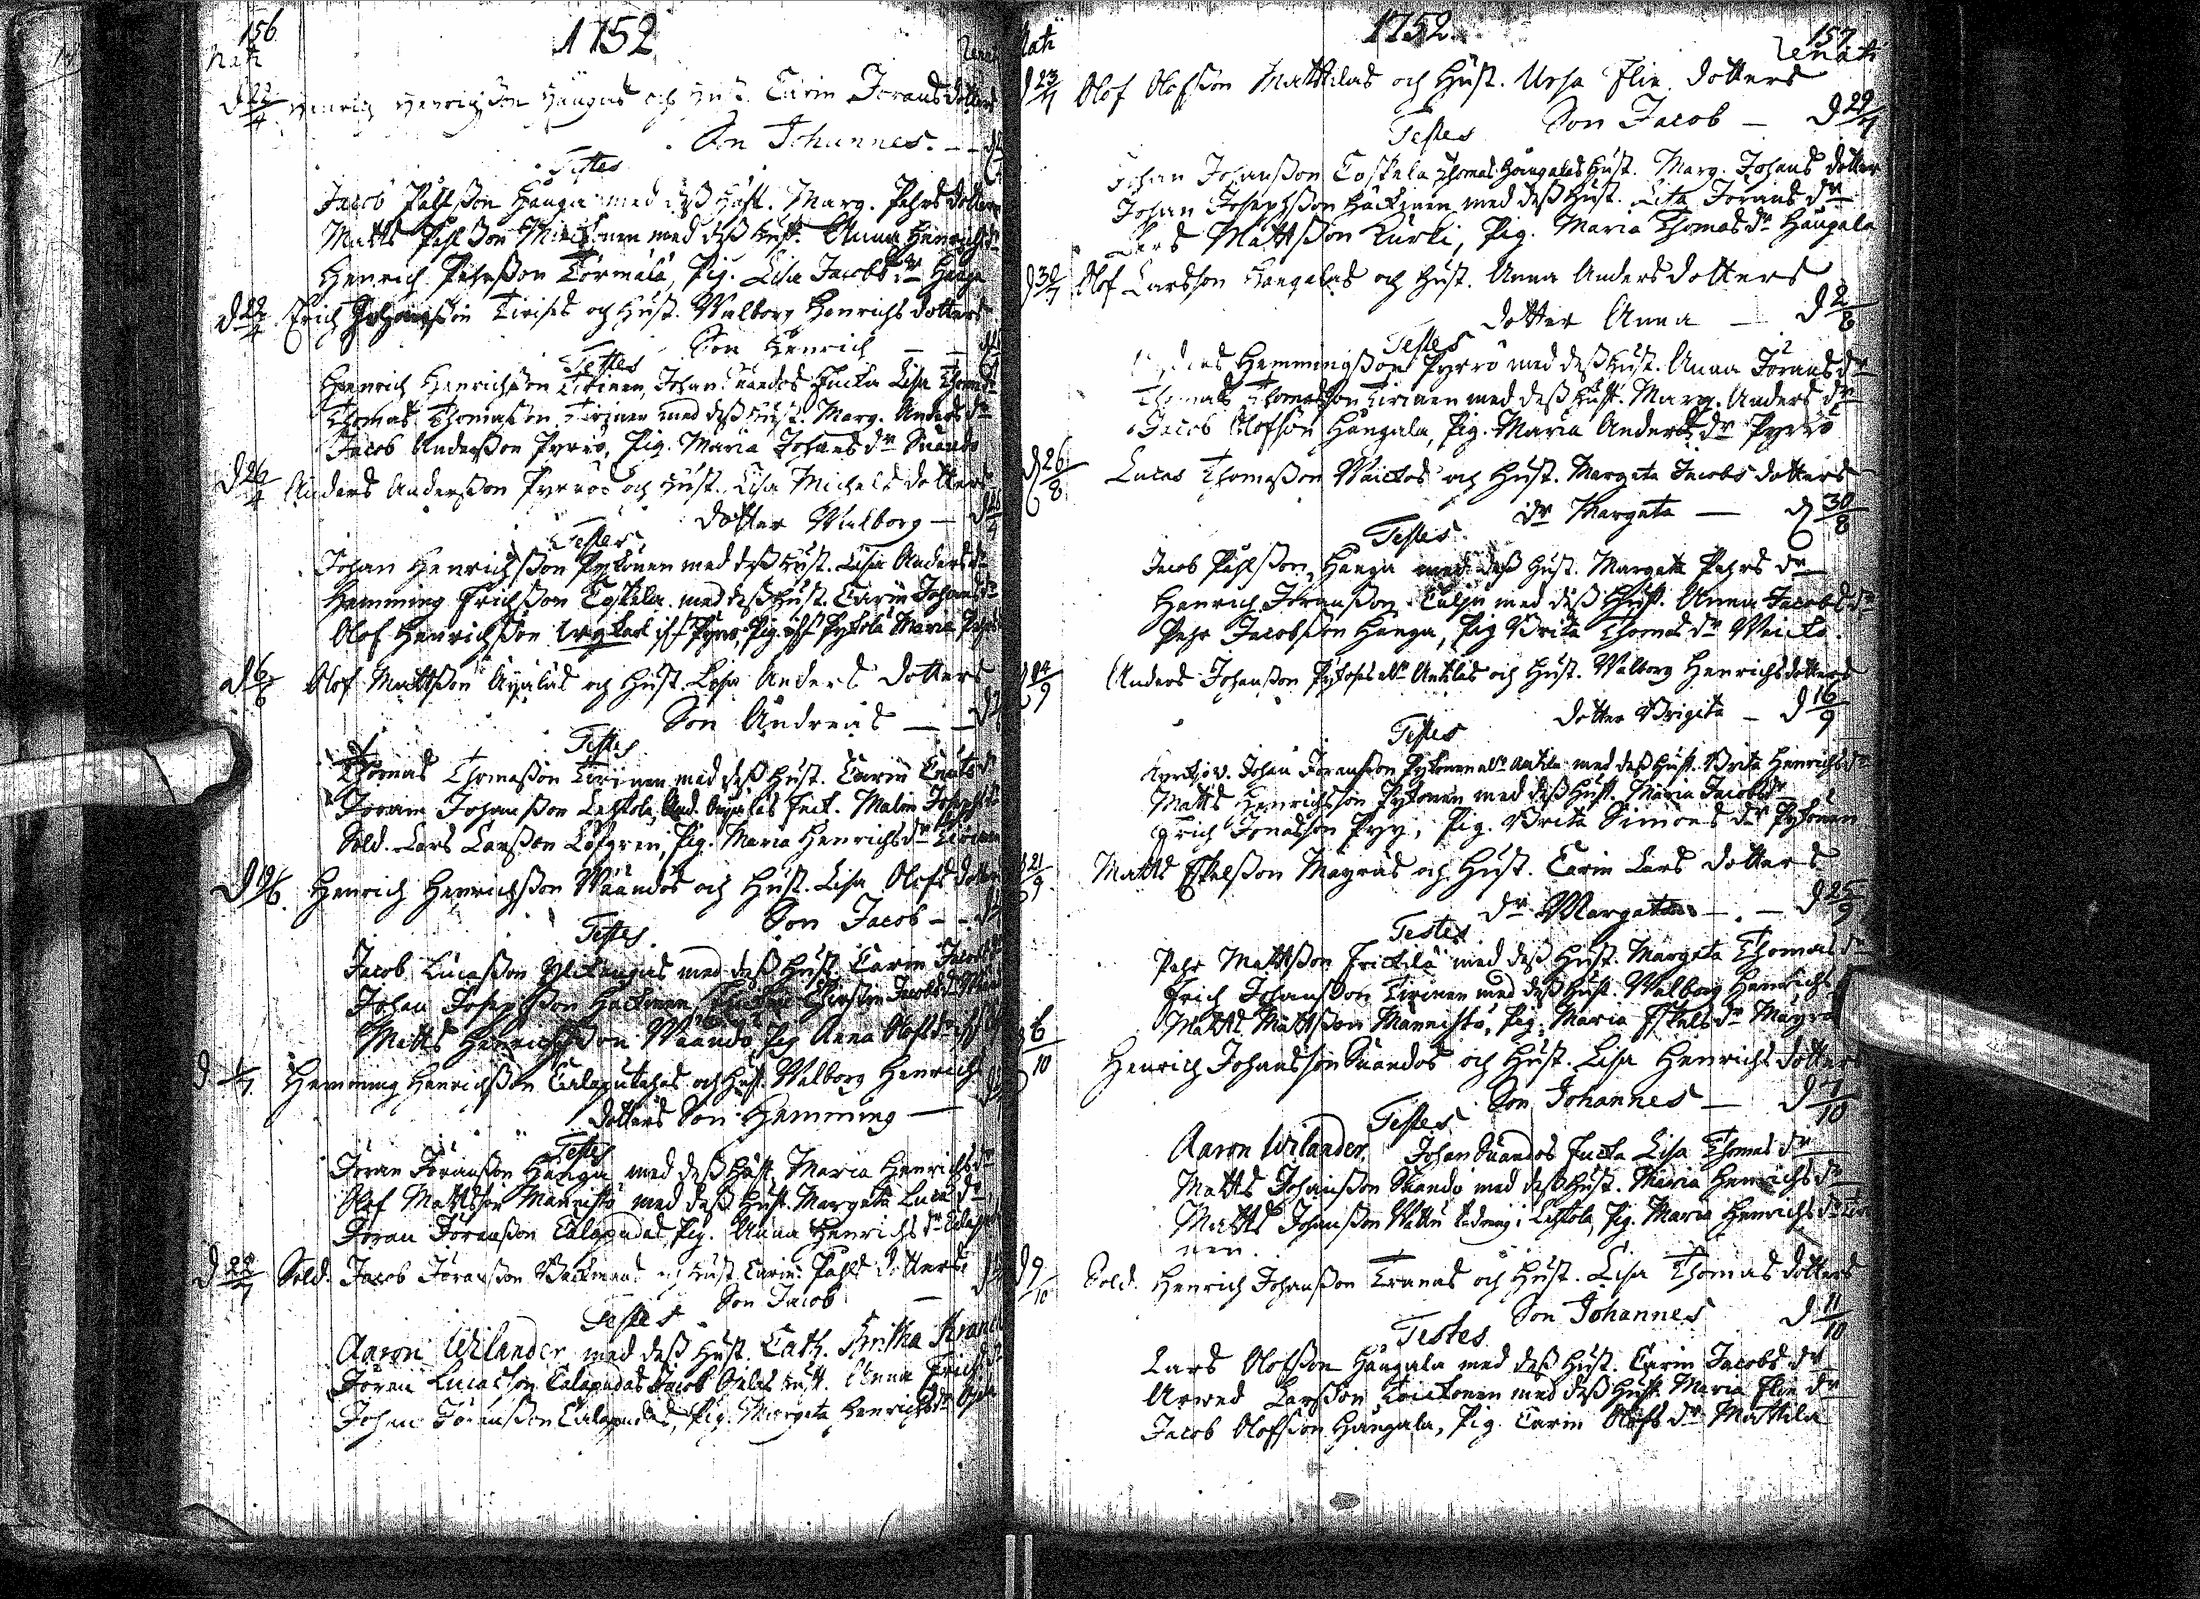 156
1752
Nati
Renati
d 22/4 Henrich Henrichsson Haugas och Hust. Carin Jöransdotters
Son Johannes.
Testes
Jacob Påhlsson Hauga med dess Hust. Marg. Pehrsdotter
Matts Påhlsson med dess Hust. Anna Henrichsdr
Henrich Pehrsson Törmälä, Pig. Lisa Jacobsdr Hauga
d 22/4 Erich Johansson Tirises och Hust. Walborg Henrichsdotters
Son Henrich
Testes
Henrich Henrichsson Tirinen, Johan Suandos Hustu Lisa Thomsdr
Thomas Thomasson Tirinen med dess Hust. Marg. Andersdr
Jacob Andersson Pyrrö, Pig. Maria Johansdr Suando
d 26/4 Anders Andersson Pyrröö och Hust. Lisa Michelsdotters
dotter Walborg
Testes
Johan Henrichsson Pykönen med dess Hust. Lisa Andersdr
Hemming Erichsson Coskela med dess Hust. Carin Johansdr
Olof Henrichsson Pyrrö, Pig. Pykölä Maria
d 6/6 Olof Mattsson Äyäläs och Hust. Lisa Anders dotters
Son Andreas
Testes
Thomas Thomasson Tirinen med dess Hust. Carin Cnutsdr
Jöran Johansson Lehtola, Malin Josephsdr
Sold. Lars Larsson Löfgren, Pig. Maria Henrichsdr Tirinen
d 19/6 Henrich Henrichsson Wäändös och Hust. Lisa Olofsdotters
Son Jacob
Testes
Jacob Lucasson Ylihaugas med dess Hust. Carin Jacobsdr
Johan Josephsson Häckinen, Kirstin Jacobsdr
Matts Henrichsson Wäändö, Pig Anna Olofsdr
d 1/7 Hemming Henrichsson Calaputahas och Hust. Walborg Henrichs
dotters Son Hemming
Testes
Jöran Jöransson Hauga med dess Hust. Maria Henrichsdr
Olof Mattsson Mannistö med dess Hust. Margeta Lucasdr
Jöran Jöransson Calapudas, Pig. Anna Henrichsdr
d 22/7 Sold. Jacob Jöransson Bäckmans och Hust. Carin Påhls dotters
Son Jacob
Testes
Aaron Wilander med dess Hust. Cath. Britha
Jöran Lucasson Calapudas Jacob Hust. Anna Erichsdr
Johan Jöransson Calapudas, Pig. Margeta Henrichsdr
1752
157
Nati
Renati
d 23/7 Olof Olofsson Mattilas och Hust. Ursa Elie dotters
Son Jacob d 29/7
Testes
Johan Johansson Coskela Thomas Haugalas Hust. Marg. Johans dotter
Johan Josephsson Häckinen med dess Hust. Lisa Jörans dr
Lars Mattsson Kurki, Pig. Maria Thomas dr Haugala
d 30/7 Olof Larsson Haugalas och Hust. Anna Anders dotters
dotter Anna d 2/8
Testes
Hemmingsson Pyrrö med dess Hust. Anna Jöransdr
Thomas Thomasson Tirinen med dess Hust. Marg. Anders dr
Jacob Olofsson Haugala, Pig. Maria Anders dr Pyrrö
d 26/8 Lucas Thomasson Waictos och Hust. Margeta Jacobs dotters
dr Margeta d 30/8
Testes
Jacob Påhlsson Hauga med dess Hust. Margeta Pehrs dr
Henrich Jöransson Talju med dess Hust. Anna Jacobsdr
Pehr Jacobsson Hauga, Pig Brita Thomasdr Waicto.
14/9 Anders Johansson Pyköses Antilas och Hust. Walborg Henrichsdotters
dotter Brigita d 16/9
Testes
Kyrkjov. Johan Jöransson Pykönen Antila med dess Hust. Brita Henrichsdr
Matts Henrichsson Pykönen med dess Hust. Maria Jacobsdr
Erich Jonasson Pyy, Pig. Brita Simons dr Pykönen
21/9 Matts Eskelsson Mäyräs och Hust. Carin Lars dotters
dr Margeta d 25/9
Testes
Pehr Mattsson Frickilä med dess Hust. Margeta Thomasdr
Erich Johansson Tirinen med dess Hust. Walborg Henrichs
Matts Mattsson Männistö, Pig. Maria Eskelsdr Mäyrä
6/10 Henrich Johansson Suandos och Hust. Lisa Henrichs dotters
Son Johannes d 7/10
Testes
Aaron Wilander. Johan Suandos Hustu Lisa Thomas dr
Matts Johansson Suando med dess Hust. Maria Henrichsdr
Matts Johansson Lehtola, Pig. Maria Henrichsdr Tiri
nen.
d 9/10 Sold. Henrich Johansson Tranas och Hust. Lisa Thomas dotters
Son Johannes d 11/10
Testes
Lars Olofsson Haugala med dess Hust. Carin Jacobs dr
Arwed Larsson med dess Hust. Maria Elie dr
Jacob Olofsson Haugala, Pig. Carin Olofs dr Mattila